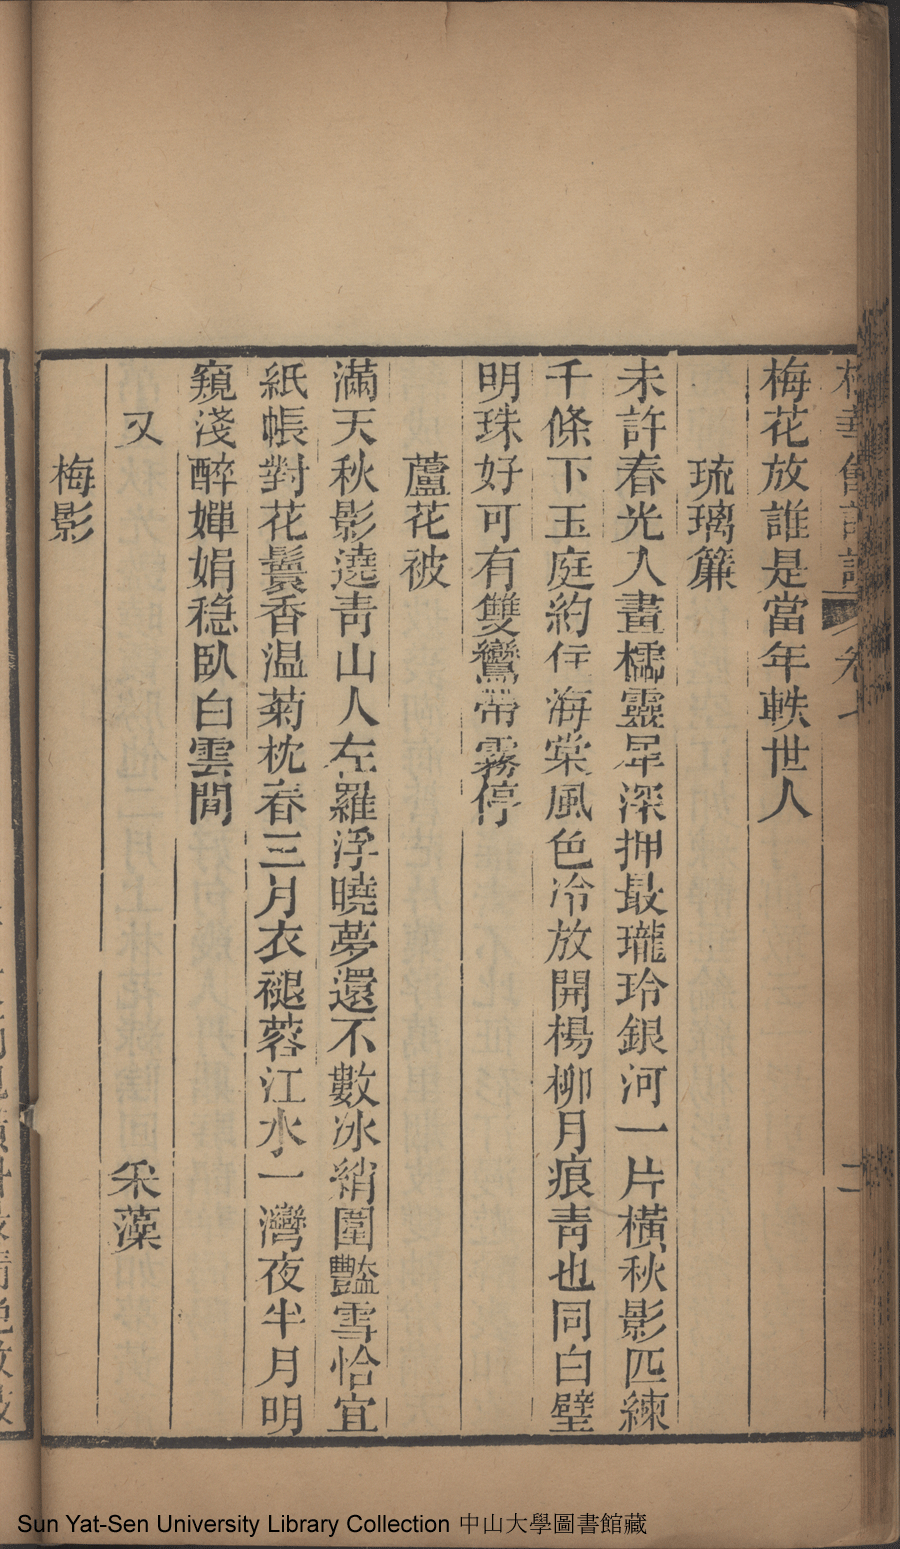 梅花放誰是當年軼世人
琉璃簾
未許春光人畫櫺靈犀深押最瓏玲銀河一片橫秋影匹練
千條下玉庭約住海棠風色冷放開楊柳月痕靑也同白璧
明珠好可有雙鸞帶霧停
蘆花被
滿天秋影遶靑山人在羅浮曉夢還不數冰綃圍豔雪恰宜
紙帳對花鬟香温菊枕春三月衣褪蓉江水一灣夜半月明
窺淺醉嬋娟稳臥白雲間
又 采藻
梅影
Sun Yat-Sen University Library Collection 中山大學圖書館藏